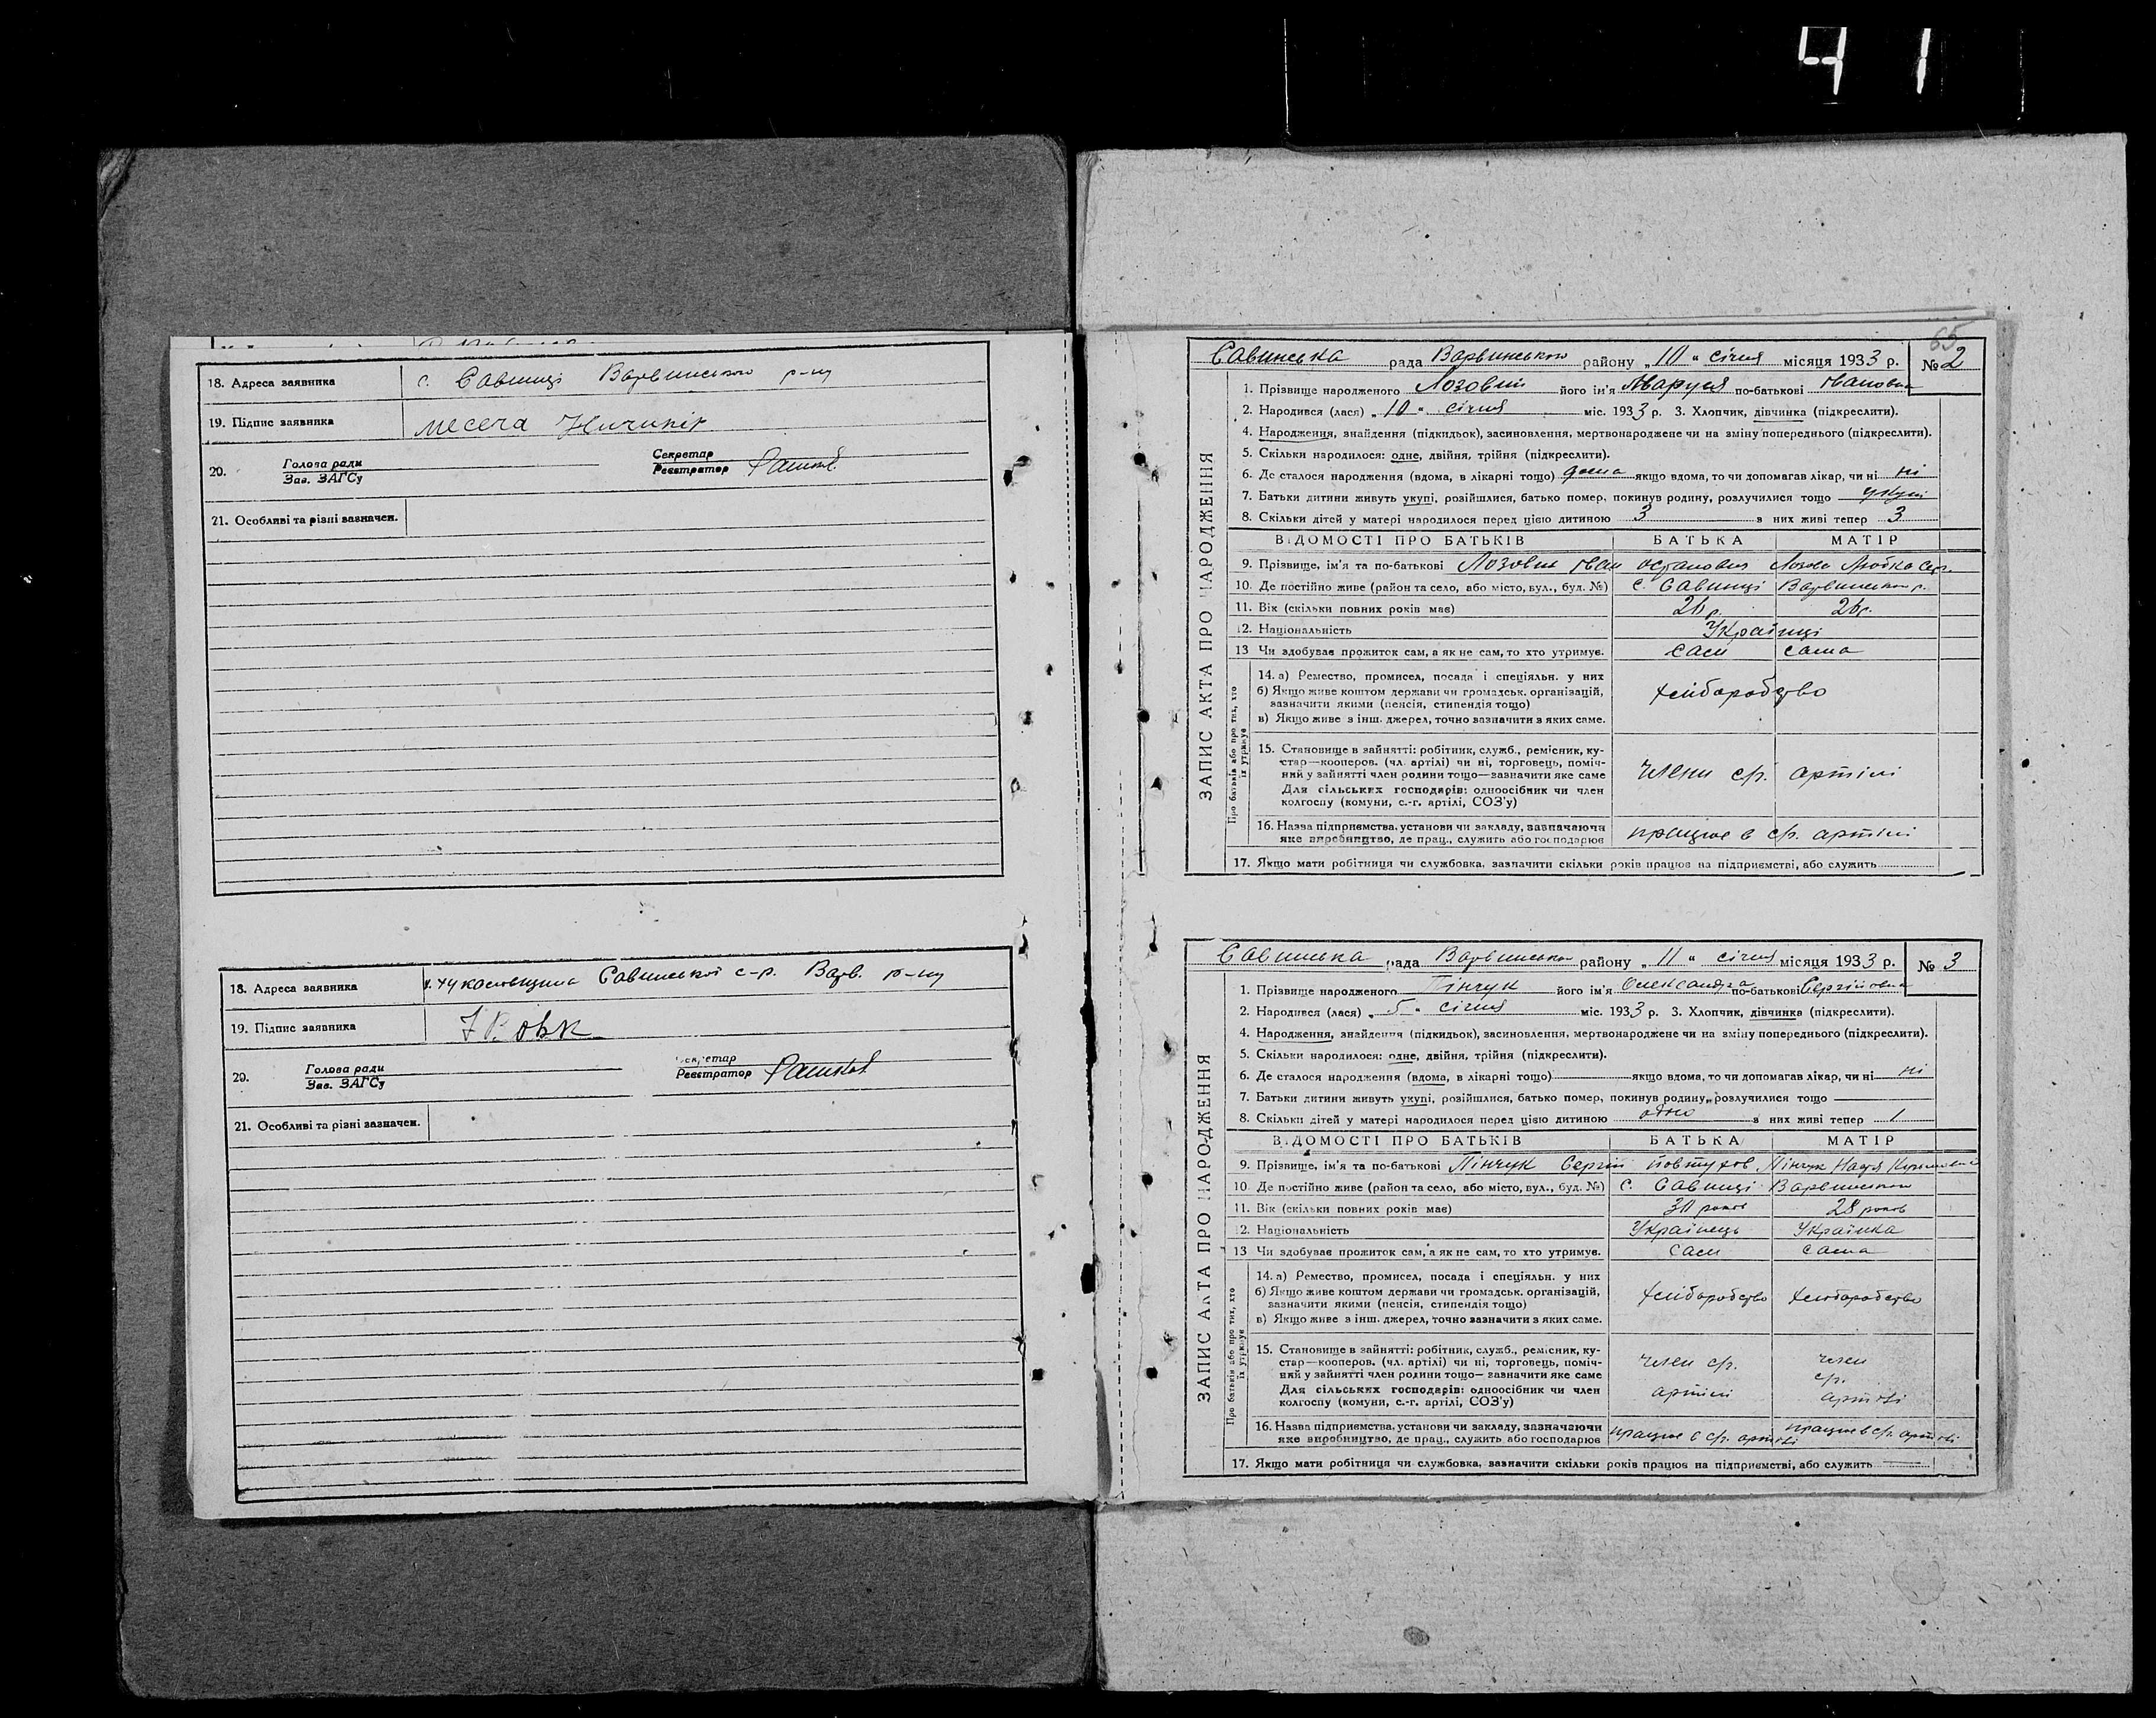 41
18. Адреса заявника с. Савинці Варвинського р-ну
19. Підпис заявника
20. Голова ради Зав. ЗАГСу Секретар Реєстратор
21. Особливі та різні зазначен.
18. Адреса заявника Савинської с-р. Варв. р-ну
19. Підпис заявника
20. Голова ради Зав. ЗАГСу Секретар Реєстратор
21. Особливі та різні зазначен.
65
Савинська рада Варвинського району „10“ січня місяця 1933 р. № 2
ЗАПИС АКТА ПРО НАРОДЖЕННЯ
1. Прізвище народженого Лозовий його ім'я Маруся по-батькові Івановна
2. Народився (лася) „10“ січня міс. 1933 р. 3. Хлопчик, дівчинка (підкреслити).
4. Народження, знайдення (підкидьок), засиновлення, мертвонароджене чи на зміну попереднього (підкреслити).
5. Скільки народилося: одне, двійня, трійня (підкреслити).
6. Де сталося народження (вдома, в лікарні тощо) дома якщо вдома, то чи допомагав лікар, чи ні ні
7. Батьки дитини живуть укупі, розійшлися, батько помер, покинув родину, розлучилися тощо укупі
8. Скільки дітей у матері народилося перед цією дитиною 3 з них живі тепер 3
ВІДОМОСТІ ПРО БАТЬКІВ БАТЬКА МАТІР
9. Прізвище, ім'я та по-батькові Лозовий Іван Остапович Лозова
10. Де постійно живе (район та село, або місто, вул., буд. №) с. Савинці Варвинського р.
11. Вік (скільки повних років має) 26 р. 26 р.
12. Національність Українці
13 Чи здобуває прожиток сам, а як не сам, то хто утримує. сам сама
Про батьків або про тих, хто їх утримує
14. а) Ремество, промисел, посада і спеціяльн. у них
б) Якщо живе коштом держави чи громадськ. організацій, зазначити якими (пенсія, стипендія тощо) хліборобство
в) Якщо живе з інш. джерел, точно зазначити з яких саме.
15. Становище в зайнятті: робітник, служб., ремісник, ку-
стар—кооперов. (чл. артілі) чи ні, торговець, поміч-
ний у зайнятті член родини тощо—зазначити яке саме члени с/г. артілі
Для сільських господарів: одноосібник чи член
колгоспу (комуни, с.-г. артілі, СОЗ'у)
16. Назва підприємства, установи чи закладу, зазначаючи
яке виробництво, де прац., служить або господарює працює в с/г. артілі
17. Якщо мати робітниця чи службовка, зазначити скільки років працює на підприємстві, або служить
Савинська рада Варвинського району „11“ січня місяця 1933 р. № 3
ЗАПИС АКТА ПРО НАРОДЖЕННЯ
1. Прізвище народженого Пінчук його ім'я Олександра по-батькові Сергійовна
2. Народився (лася) „5“ січня міс. 1933 р. 3. Хлопчик, дівчинка (підкреслити).
4. Народження, знайдення (підкидьок), засиновлення, мертвонароджене чи на зміну попереднього (підкреслити).
5. Скільки народилося: одне, двійня, трійня (підкреслити).
6. Де сталося народження (вдома, в лікарні тощо) якщо вдома, то чи допомагав лікар, чи ні ні
7. Батьки дитини живуть укупі, розійшлися, батько помер, покинув родину, розлучилися тощо
8. Скільки дітей у матері народилося перед цією дитиною одно з них живі тепер 1
ВІДОМОСТІ ПРО БАТЬКІВ БАТЬКА МАТІР
9. Прізвище, ім'я та по-батькові Пінчук Сергій Пінчук Надя
10. Де постійно живе (район та село, або місто, вул., буд. №) с. Савинці Варвинського
11. Вік (скільки повних років має) 30 років 28 років
12. Національність Українець Українка
13 Чи здобуває прожиток сам, а як не сам, то хто утримує. сам сама
Про батьків або про тих, хто їх утримує
14. а) Ремество, промисел, посада і спеціяльн. у них
б) Якщо живе коштом держави чи громадськ. організацій, зазначити якими (пенсія, стипендія тощо) хліборобство хліборобство
в) Якщо живе з інш. джерел, точно зазначити з яких саме.
15. Становище в зайнятті: робітник, служб., ремісник, ку-
стар—кооперов. (чл. артілі) чи ні, торговець, поміч-
ний у зайнятті член родини тощо—зазначити яке саме член с/г. артілі член с/г. артілі
Для сільських господарів: одноосібник чи член
колгоспу (комуни, с.-г. артілі, СОЗ'у)
16. Назва підприємства, установи чи закладу, зазначаючи
яке виробництво, де прац., служить або господарює працює в с/г. артілі працює в с/г. артілі
17. Якщо мати робітниця чи службовка, зазначити скільки років працює на підприємстві, або служить